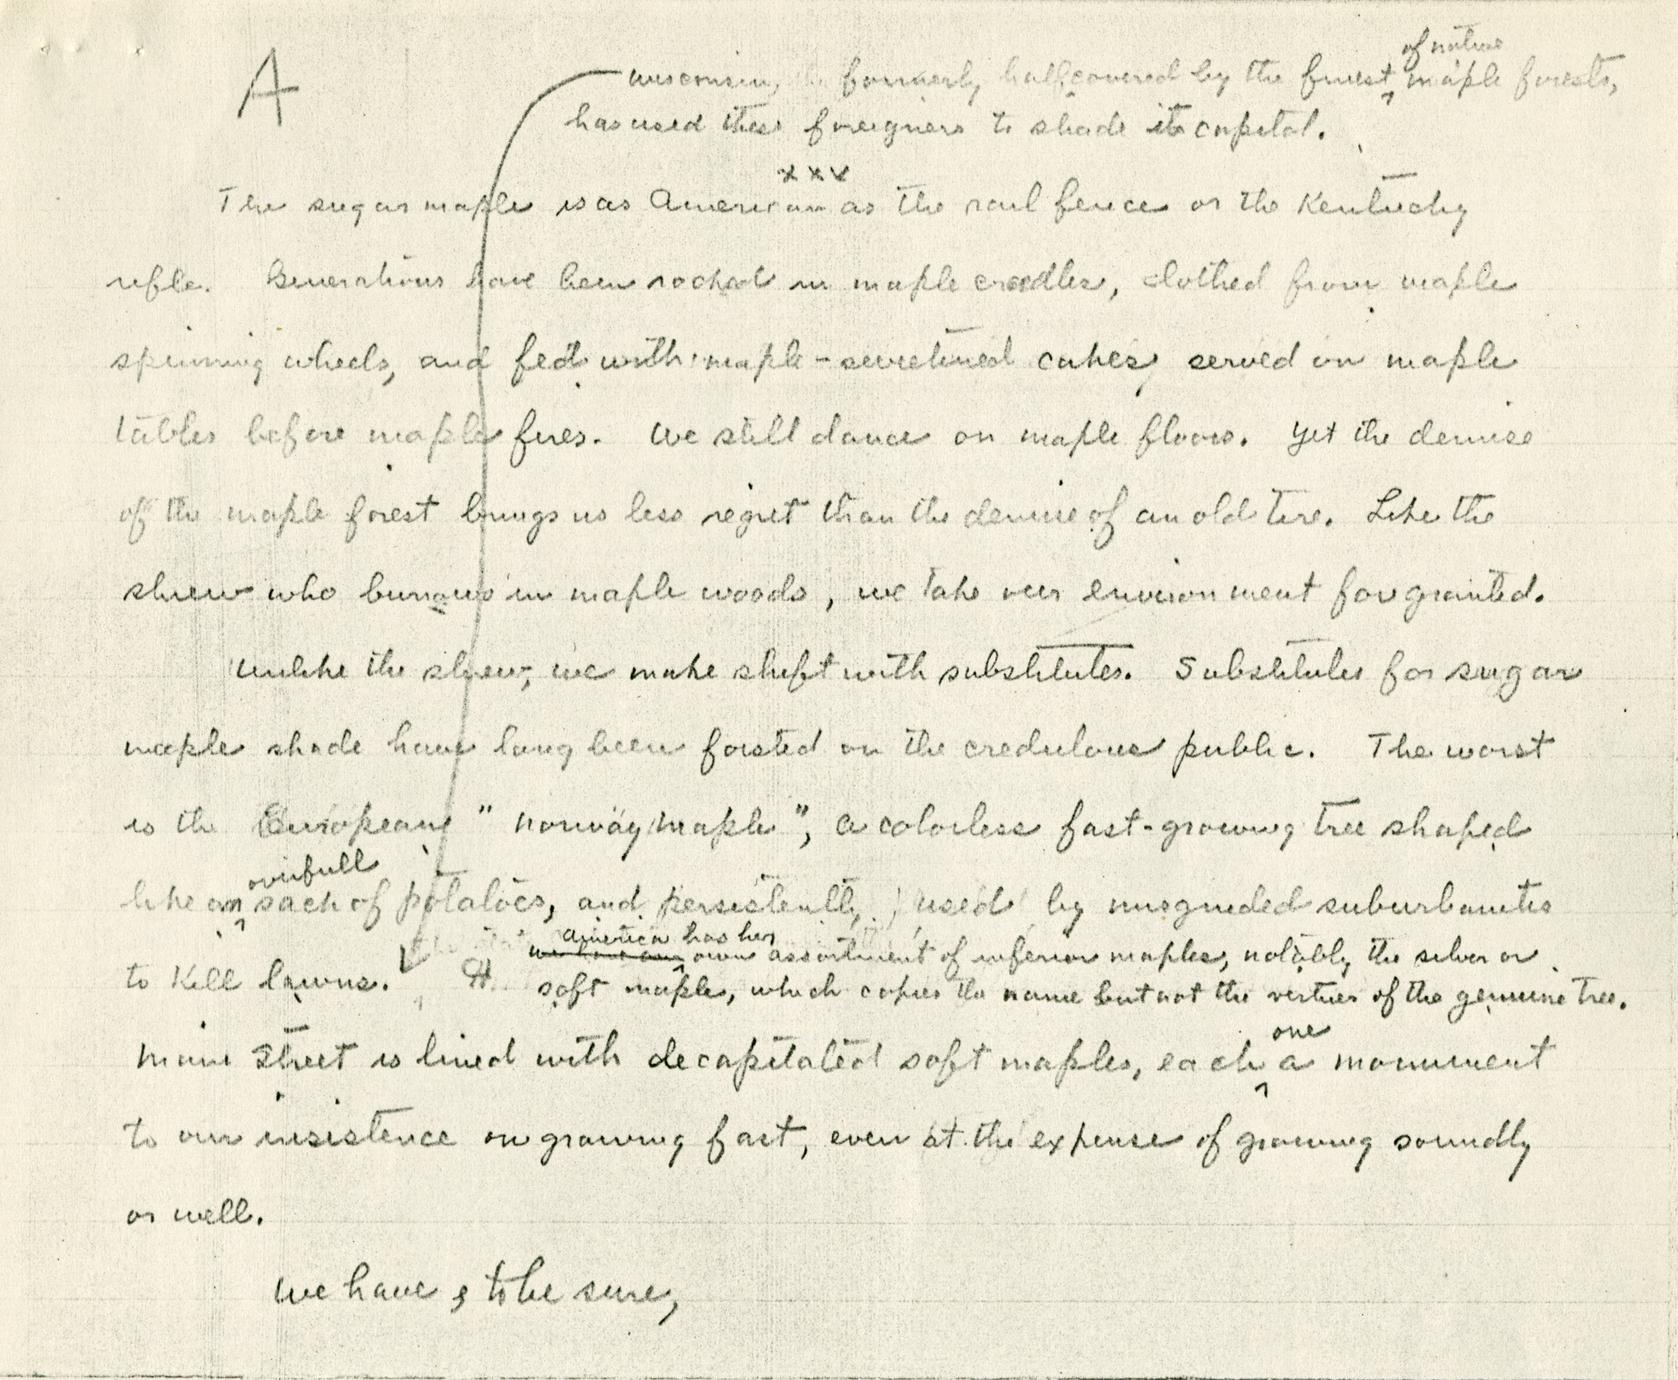 A
of native
Wisconsin, formerly half covered by the finest maple forests,
has used these foreigners to shade its capitol.
x x x
The sugar maple is as American as the rail fence or the Kentucky
rifle. Generations have been rocked in maple cradles, clothed from maple
spinning wheels, and fed with maple-sweetened cakes served on maple
tables before maple fires. We still dance on maple floors. Yet the demise
of the maple forest brings us less regret than the demise of an old tire. Like the
shrew who burrows in maple woods, we take our environment for granted.
Unlike the shrew, we make shift with substitutes. Substitutes for sugar
maple shade have long been foisted on the credulous public. The worst
is the European "Norway maple", a colorless fast-growing tree shaped
overfull
like an sack of potatoes, and persistently used by misguided suburbanites
America has her
to kill lawns. we have our own assortment of inferior maples, notably the silver or
soft maple, which copies the name but not the virtues of the genuine tree.
one
Main Street is lined with decapitated soft maples, each a monument
to our insistence on growing fast, even at the expense of growing soundly
or well.
We have, to be sure,